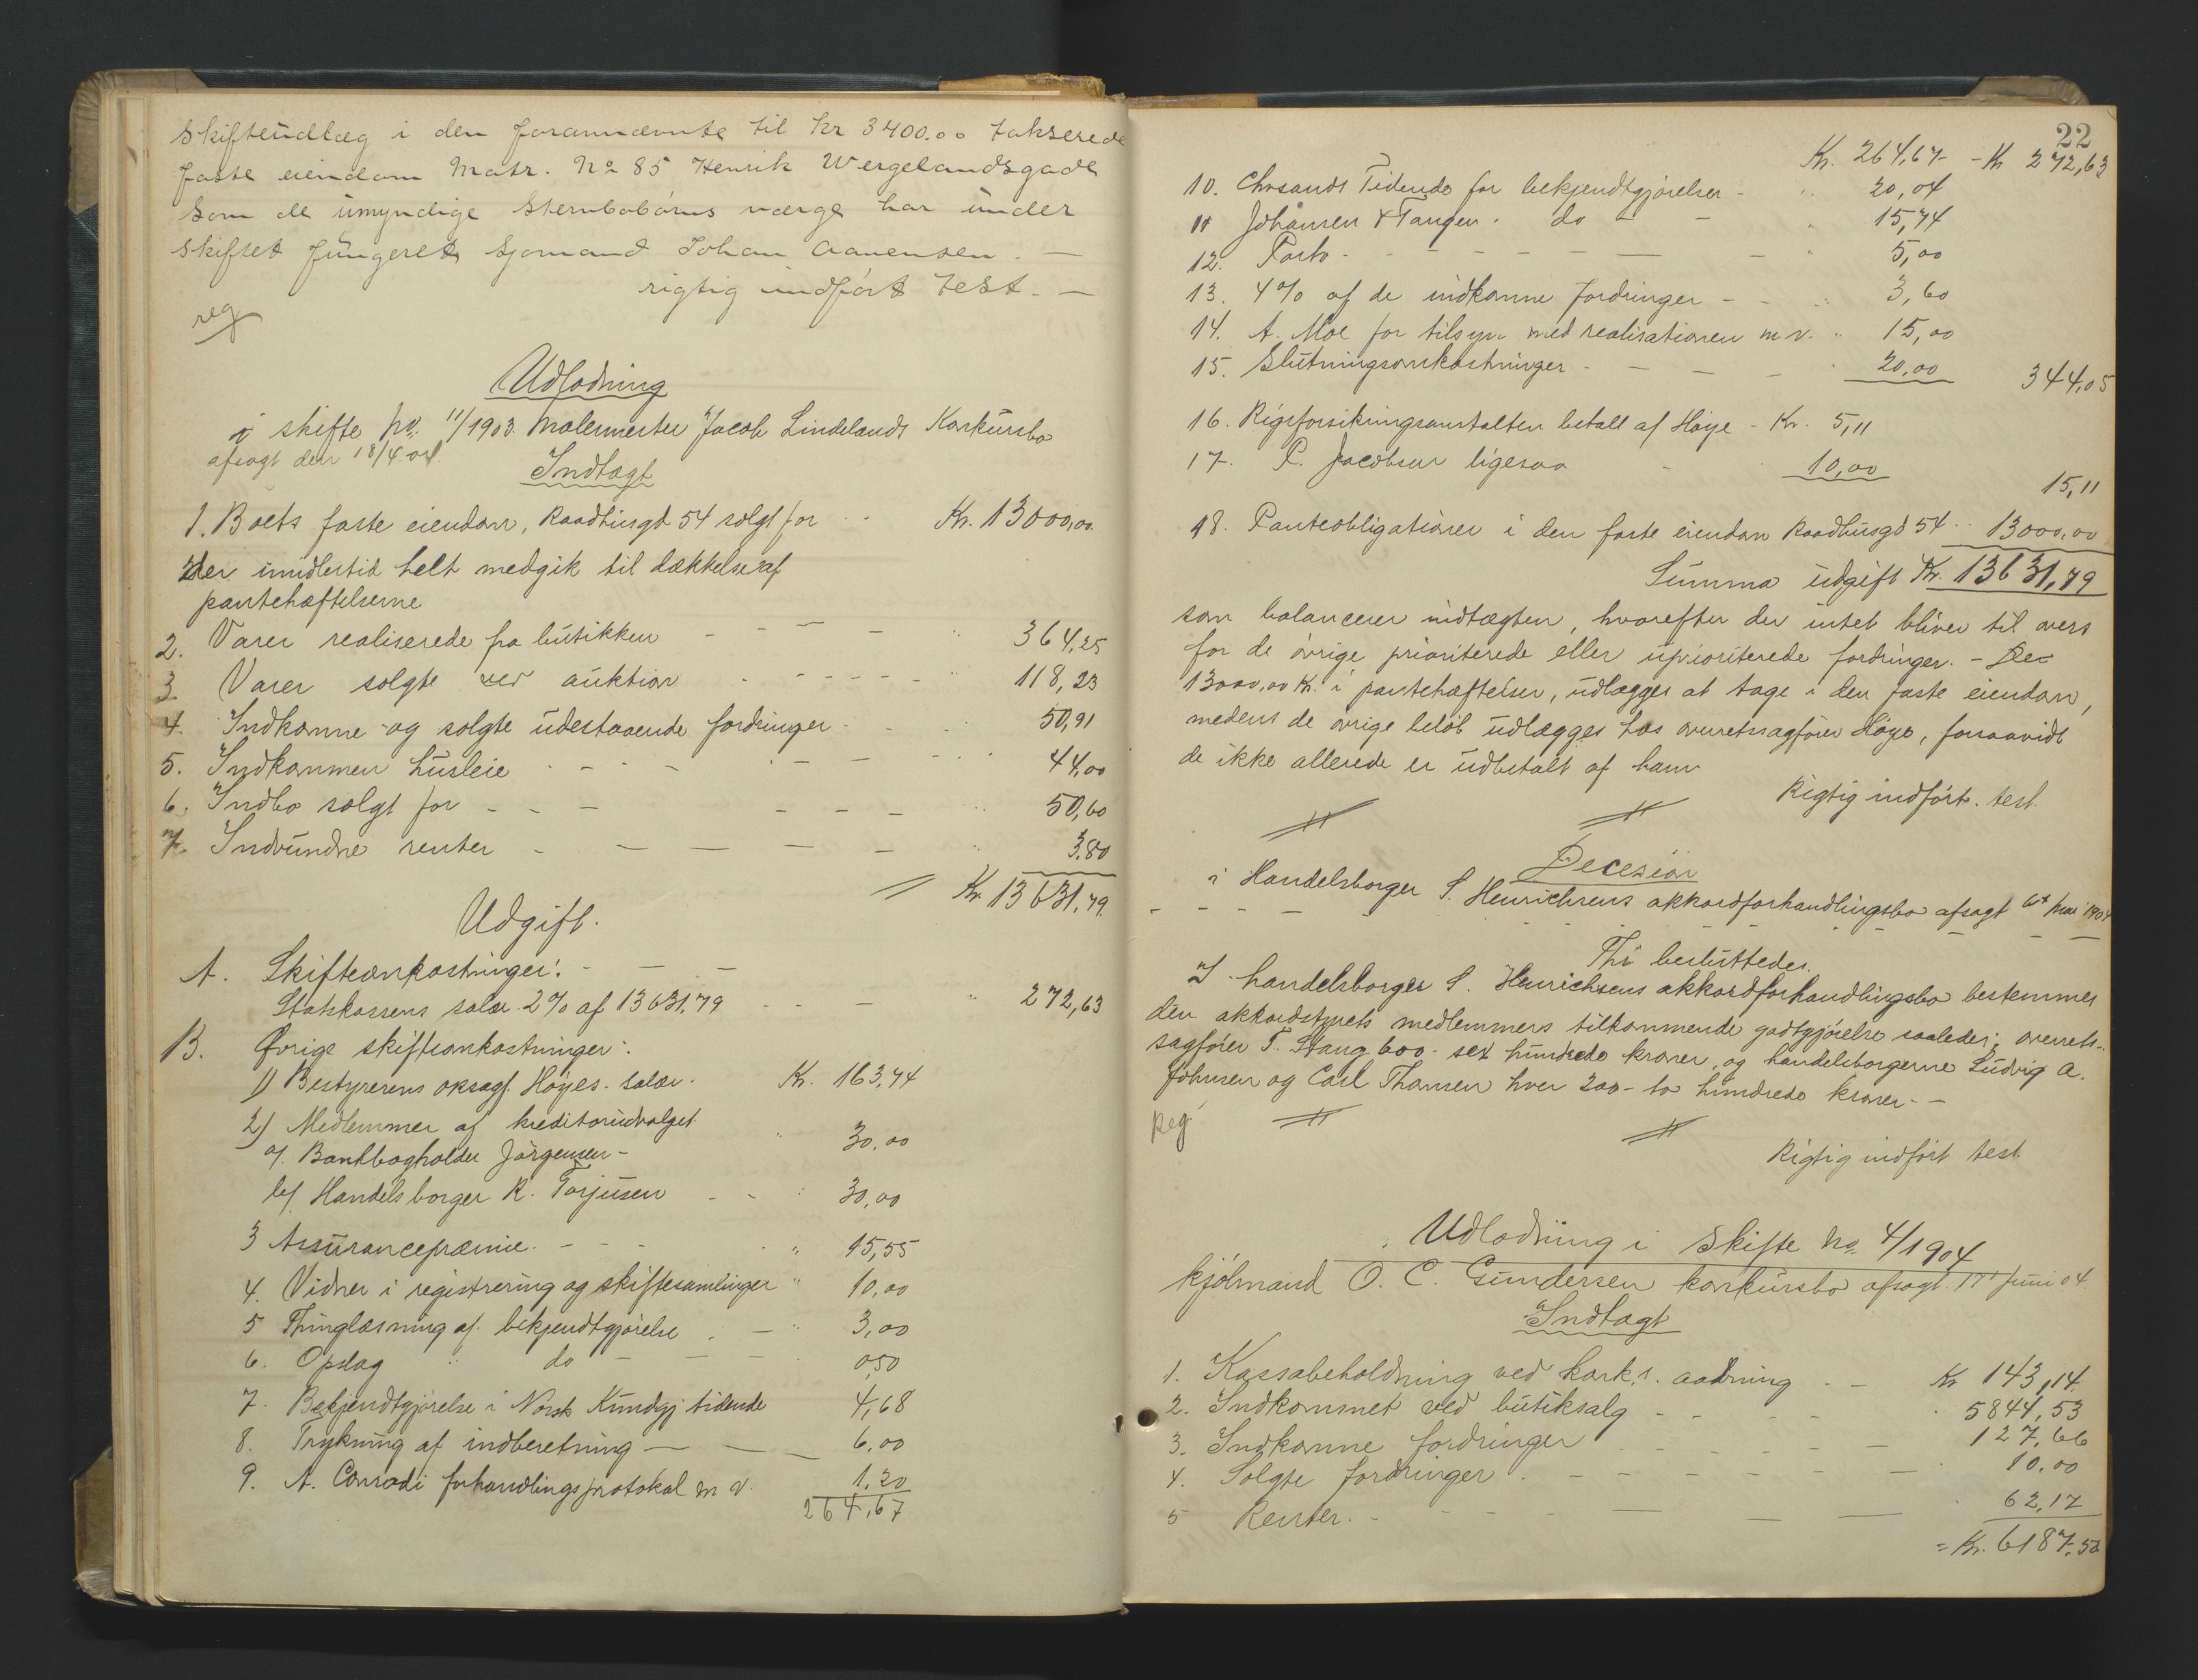 Skifteudlæg i den forannævnte til kr 3400.00 takserede
faste eiendom Matr. No 85 Henrik Wergelandsgade
Som de umyndige Stervbobörns værge har under
Skiftet fungeret Sjømand Johan Aanensen. —
rigtig indført test. —
reg
Udlodning
i skifte no. 11/1903. Malermester Jacob Lindelands Konkursbo
afsagt den 18/4 04.
Indtægt
1. Boets faste eiendom, Raadhusgd 54 solgt for - - Kr. 13000,00.
der imidlertid helt medgik til dækkelse af
pantehæftelserne
2. Varer realiserede fra butikken - - - - " 364,25
3. Varer solgte ved auktion - - - - - - " 118,23
4. Indkomne og solgte udestaaende fordringer - - . 50,91
5. Indkommen husleie - - - - - - - 44,00
6. Indbo solgt for - - - - - - " 50,60
7. Indvundne renter - - - - - " 3.80
= Kr. 13631,79.
Udgift.
A. Skifteomkostninger: - - -
Statskassens salær 2% af 13631,79 - - - " 272,63
B. Øvrige skifteomkostninger:
1) Bestyrerens oksagf. Høyes salær. Kr. 163,74
2) Medlemmer af kreditorudvalget
a). Bankbogholder Jörgensen - " 30,00
b). Handelsborger R. Torjusen - - : 30,00
3 Assurancepræmie. - - - " 15,55
4. Vidner i registrering og skiftesamlinger " 10,00
5 Thinglæsning af bekjendtgjørelse . - " 3,00
6. Opslag " do - - - 0,50
7. Bekjendtgjørelse i Norsk Kundgj tidende 4,68
8. Trykning af indberetning - - - 6,00
9. A. Conradi forhandlingsprotokol m v. 1,20
264,67
22
Kr. 264,67 - Kr 272,63
10. Chrsands Tidende for bekjendtgjörelser - " 20,04
11 Johansen & Tangen . do - - " 15,74
12. Porto - - - - - - - - " 5,00
13. 4% af de indkomne fordringer - - : 3,60
14. A. Moe for tilsyn med realisationen m v. " 15,00
15. Slutningsomkostninger - - - - " 20,00 344,05
16. Rigsforsikringsanstalten betalt af Höye - Kr. 5,11
17. P. Jacobsen ligesaa - 10,00
15,11
18. Panteobligationer i den faste eiendom Raadhusgd 54 - 13000,00
Summa udgift Kr. 13631,79
som balancerer indtægten, hvorefter der intet bliver til overs
for de övrige prioriterede eller uprioriterede fordringer. - De
13000,00 Kr. i pantehæftelser, udlægges at tage i den faste eiendom,
medens de övrige beløb udlægges hos overretssagfører Höye, forsaavidt
de ikke allerede er udbetalt af ham
Rigtig indfört. test.
Decesion
i Handelsborger S. Henrichsens akkordforhandlingsbo afsagt 6te Mai 1904
Thi besluttedes.
I handelsborger S. Henrichsens akkordforhandlingsbo bestemmes
den akkordstyrets medlemmers tilkommende godtgjörelse saaledes: overrets-
sagfører T. Stang 600 - sex hundrede kroner, og handelsborgerne Ludvig A.
Johnsen og Carl Thomsen hver 200 - to hundrede kroner. -
Reg.
Rigtig indført test.
Udlodning i Skifte No. 4/1904
kjölmand O. C. Gundersen konkursbo afsagt. 17' Juni 04.
Indtægt
1. Kassabeholdning ved konk.s. aabning - - Kr 143,14.
2. Indkommet ved butiksalg - - - - . 5844,53
3. Indkomne fordringer - - - - - 127,66
4. Solgte fordringer . - - - - - - 10.00
5 Renter. - - - - - - - . 62,17
= Kr. 6187,50